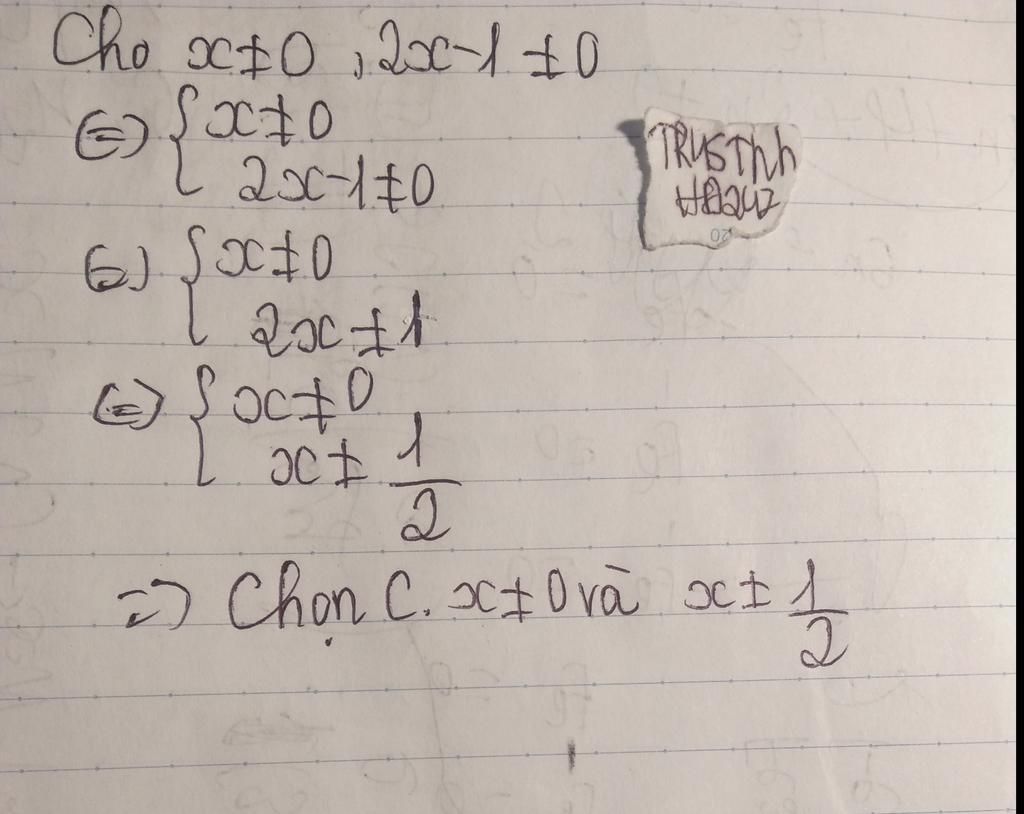 Cho x≠0, 2x-1≠0
(=) { x≠0
2x-1≠0
(=) { x≠0
2x≠1
(=) { x≠0
x≠ 1/2
=) Chọn C. x≠0 và x≠ 1/2
TRUSThh
20